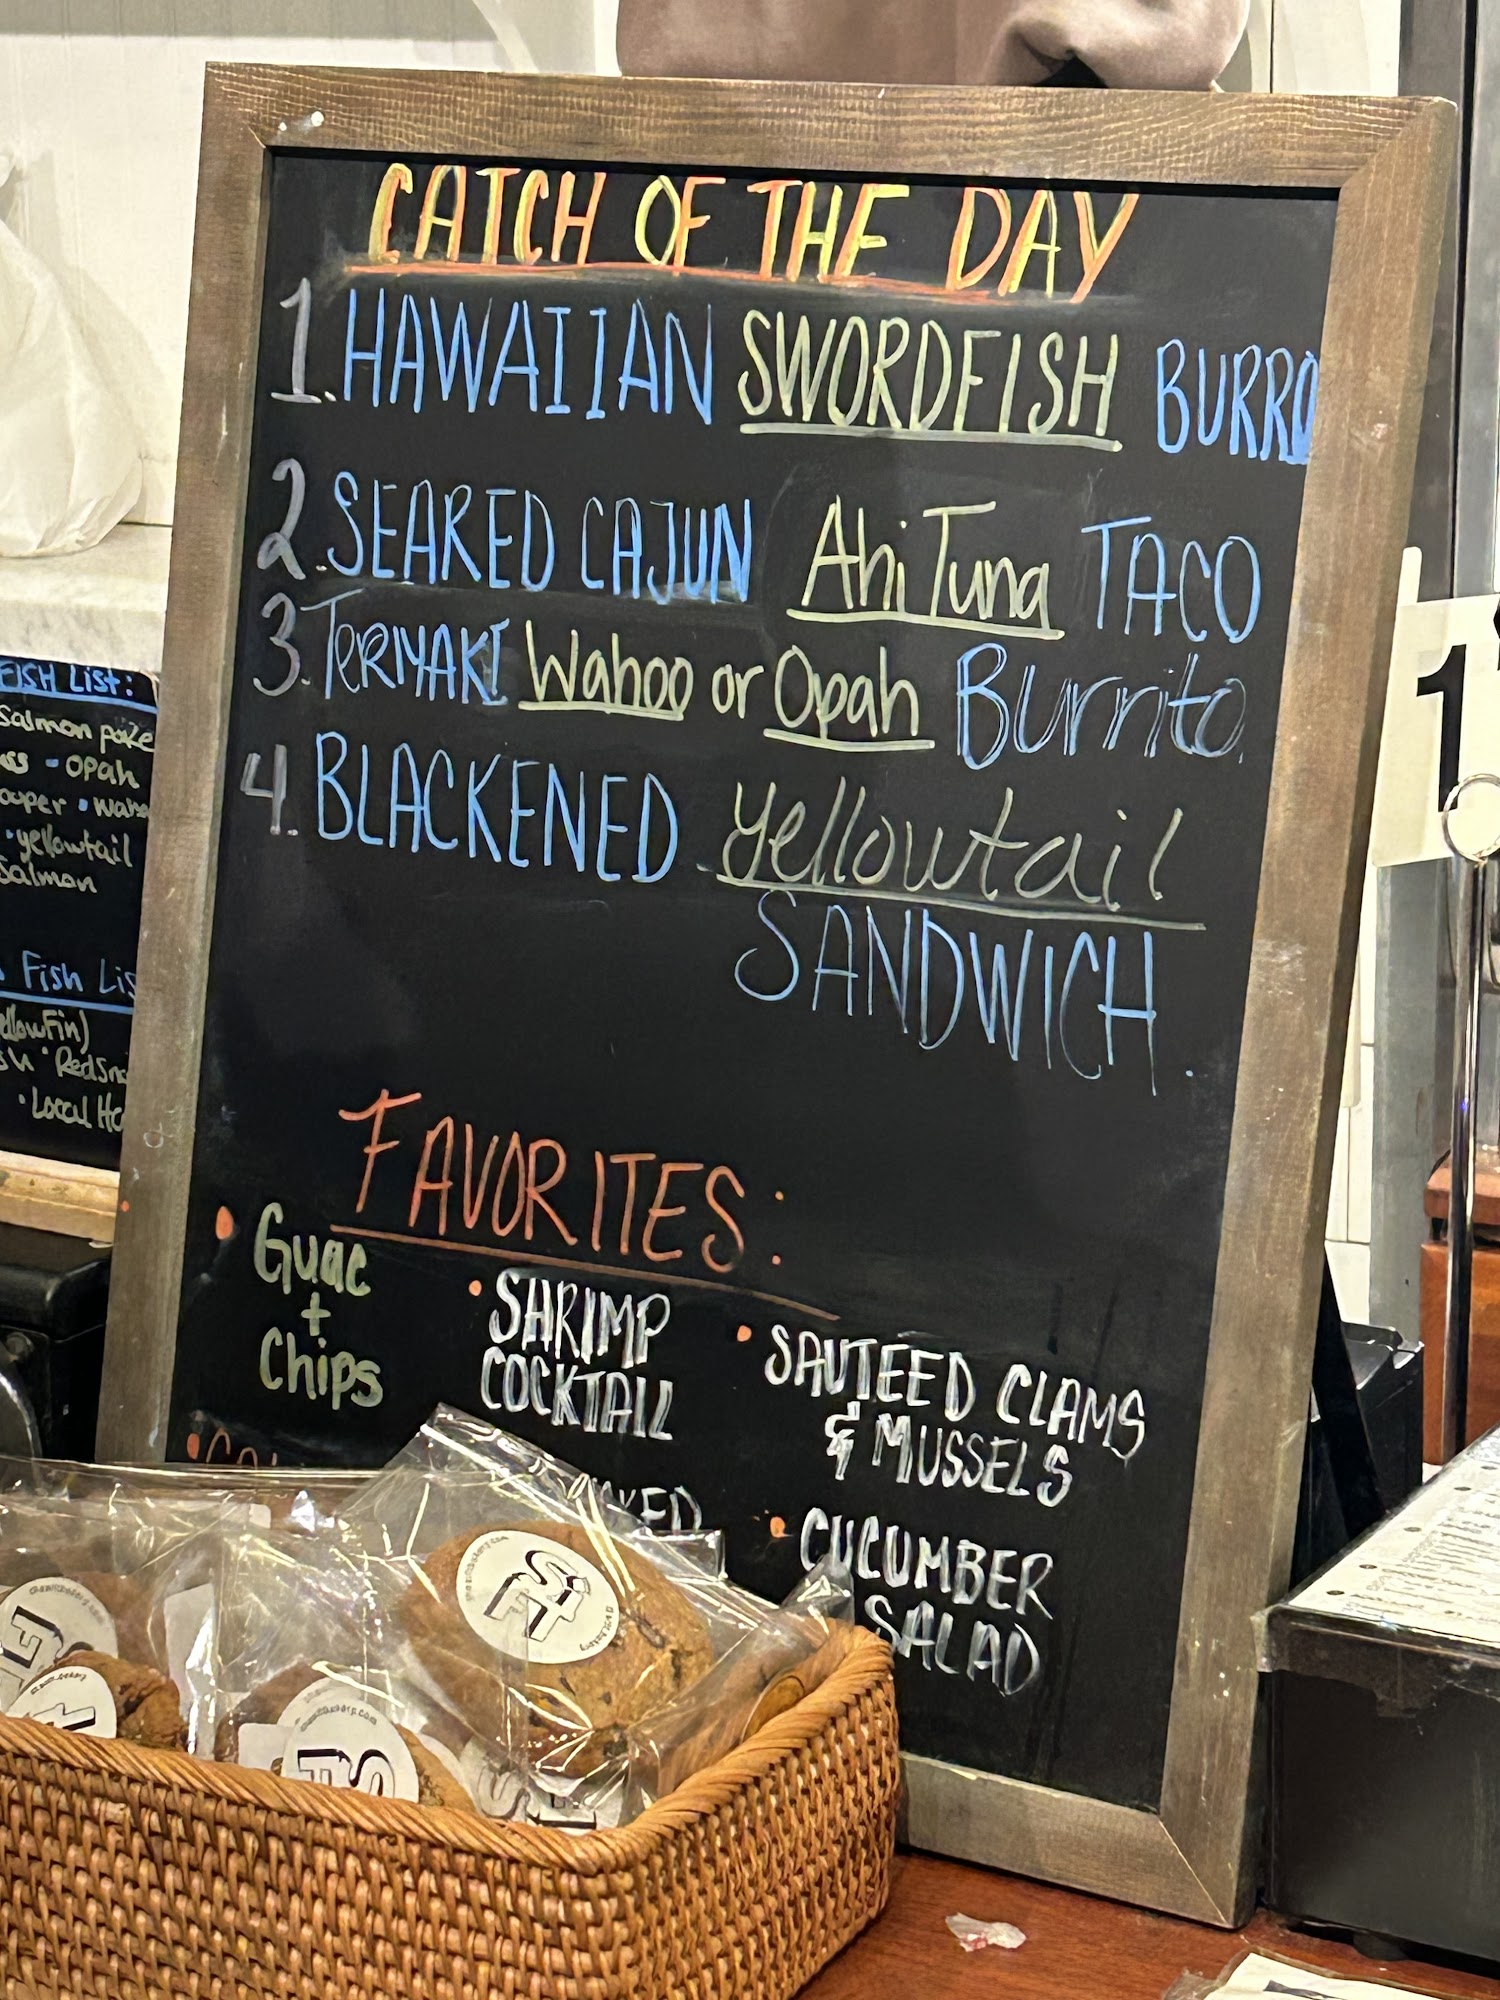 CATCH OF THE DAY
1. HAWAIIAN SWORDFISH BURRO
2. SEARED CAJUN Ahi Tuna TACO
3. TERIYAKI Wahoo or Opah Burrito
4. BLACKENED yellowtail
SANDWICH.
FAVORITES:
• Guac
+
Chips
• SHRIMP
COCKTAIL
• SAUTEED CLAMS
& MUSSELS
• CUCUMBER
SALAD
FISH LIST:
Salmon poke
• OPAH
• yellowtail
Salmon
Fish Lis
• Local
1